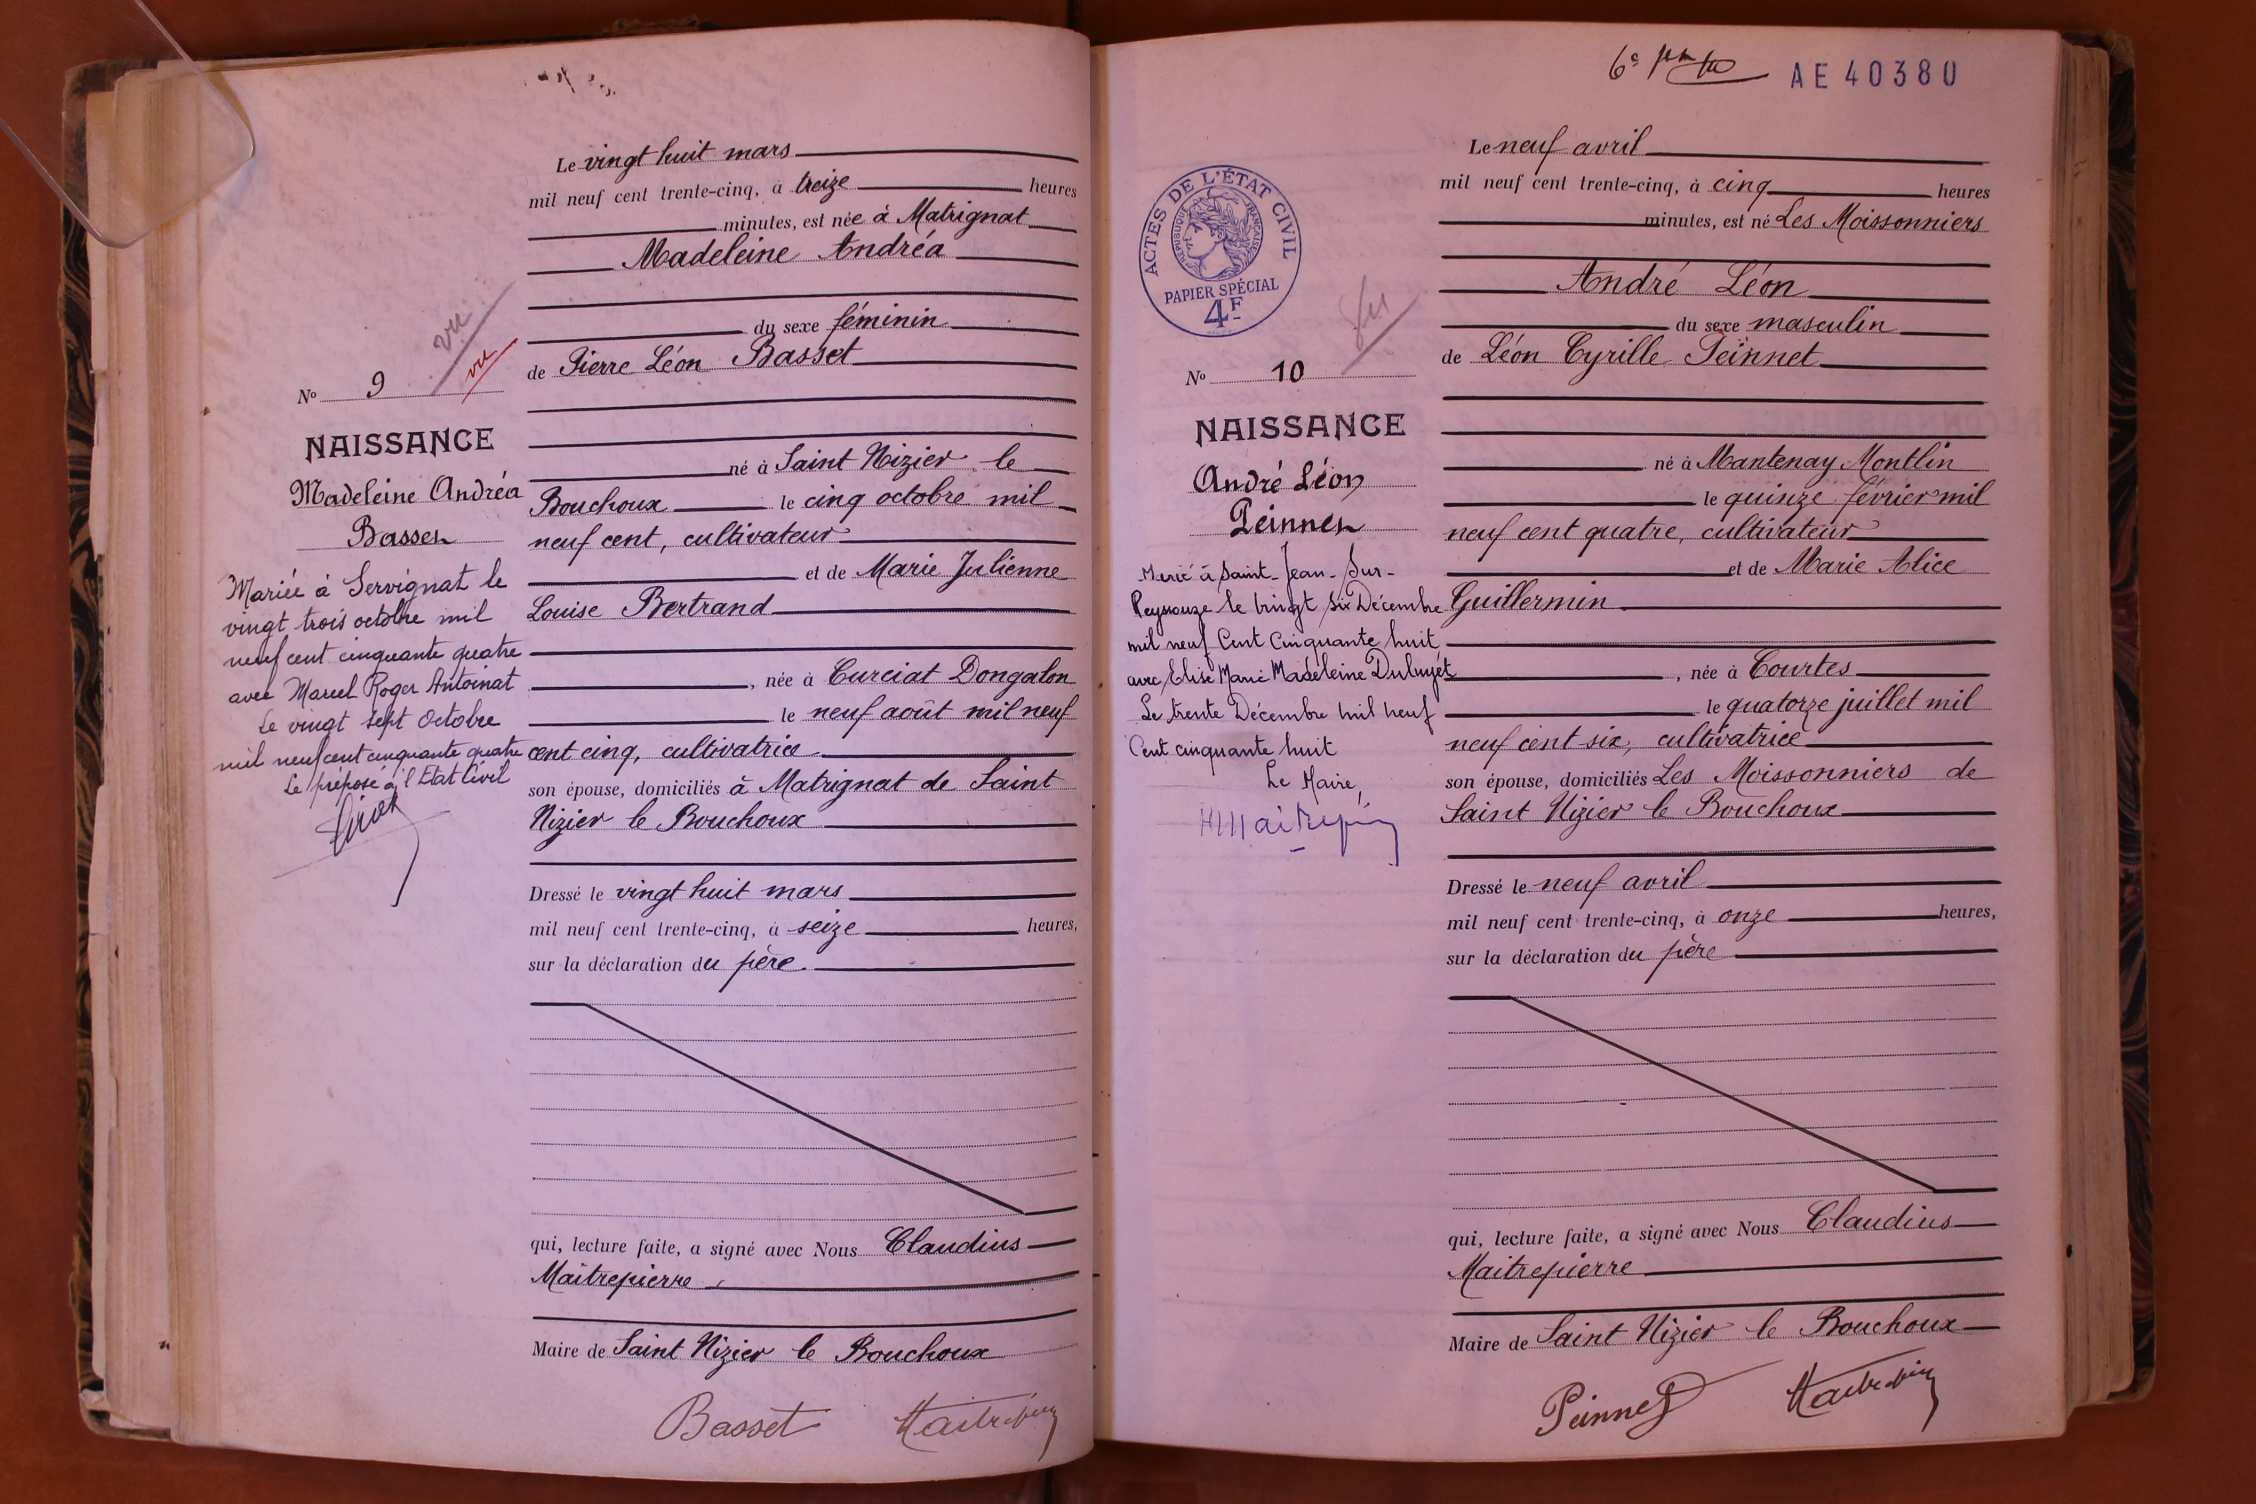 Le vingt huit mars
mil neuf cent trente-cinq, à treize heures
minutes, est née à Matrignat
Madeleine Andréa
du sexe féminin
de Pierre Léon Basset
né à Saint Nizier le
Bouchoux le cinq octobre mil
neuf cent, cultivateur
et de Marie Julienne
Louise Bertrand
, née à Curciat Dongalon
le neuf août mil neuf
cent cinq, cultivatrice
son épouse, domiciliés à Matrignat de Saint
Nizier le Bouchoux
Dressé le vingt huit mars
mil neuf cent trente-cinq, à seize heures,
sur la déclaration du père.
qui, lecture faite, a signé avec Nous Claudius
Maitrepierre,
Maire de Saint Nizier le Bouchoux
Basset
vu
vu
No 9
NAISSANCE
Madeleine Andréa
Basset
Mariée à Servignat le
vingt trois octobre mil
neuf cent cinquante quatre
avec Marcel Roger Antoinat
Le vingt sept Octobre
mil neuf cent cinquante quatre
Le préposé à l'Etat Civil
AE 40380
Le neuf avril
mil neuf cent trente-cinq, à cinq heures
minutes, est né Les Moissonniers
André Léon
du sexe masculin
de Léon Cyrille Peinnet
né à Mantenay Montlin
le quinze février mil
neuf cent quatre, cultivateur
et de Marie Alice
Guillermin
, née à Courtes
le quatorze juillet mil
neuf cent six, cultivatrice
son épouse, domiciliés Les Moissonniers de
Saint Nizier le Bouchoux
Dressé le neuf avril
mil neuf cent trente-cinq, à onze heures,
sur la déclaration du père
qui, lecture faite, a signé avec Nous Claudius
Maitrepierre
Maire de Saint Nizier le Bouchoux
Peinnet
ACTES DE L'ÉTAT CIVIL
RÉPUBLIQUE FRANÇAISE
PAPIER SPÉCIAL
4F
No 10
NAISSANCE
André Léon
Peinnet
Marié à Saint-Jean-Sur-
Reyssouze le vingt six Décembre
mil neuf Cent Cinquante huit
avec Elise Marie Madeleine
Le trente Décembre mil neuf
Cent cinquante huit
Le Maire,